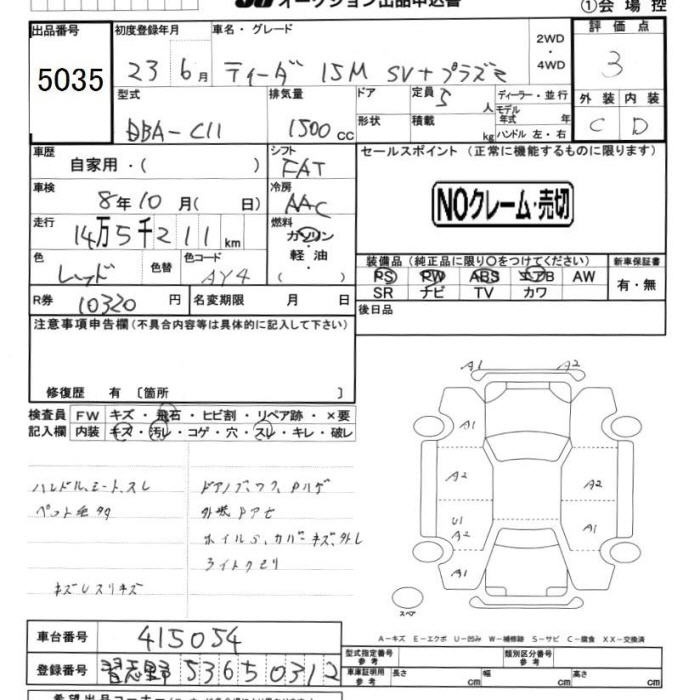 オークション出品申込書
①会場控
出品番号 5035
初度登録年月 23 6月
車名・グレード ティーダ 15M SV+プラズマ
2WD・4WD
評価点 3
型式 DBA-C11
排気量 1500cc
ドア 形状
定員 5人
積載 kg
ディーラー・並行
モデル年式 年
ハンドル 左・右
外装 C
内装 D
車歴 自家用・( )
シフト FAT
セールスポイント (正常に機能するものに限ります)
車検 8年10月( 日)
冷房 AAC
NOクレーム・売切
走行 14万5千211km
燃料 ガソリン・軽油・( )
色 レッド 色替
色コード AY4
装備品 (純正品に限り○をつけてください)
PS PW ABS エアB AW
SR ナビ TV カワ
新車保証書 有・無
R券 10320円
名変期限 月 日
後日品
注意事項申告欄(不具合内容等は具体的に記入して下さい)
修復歴 有 〔箇所 〕
検査員記入欄
FW キズ・飛石・ヒビ割・リペア跡・×要
内装 キズ・汚レ・コゲ・穴・スレ・キレ・破レ
ハンドル、シート、スレ
ドアノブ、
ライトクモリ
A1 A2
A1
A2 A2
U1 A2 A1
A1
スペア
A-キズ E-エクボ U-凹み W-補修跡 S-サビ C-腐食 XX-交換済
車台番号 415054
登録番号 習志野 536 50312
型式指定番号 参考
類別区分番号 参考
車庫証明用 参考 長さ 幅 高さ